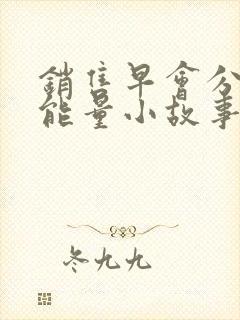 銷售早會分
能量小故事
冬九九